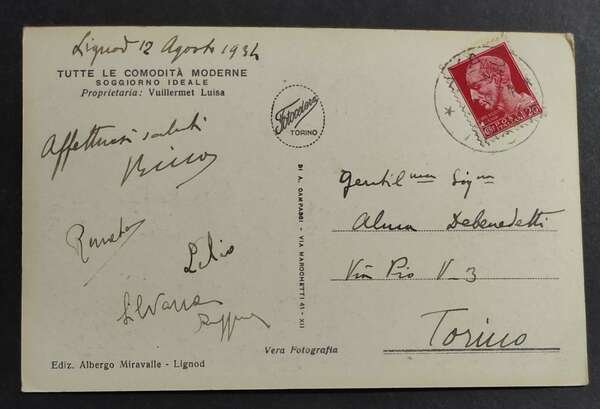 Lignod 12 Agosto 1934
TUTTE LE COMODITÀ MODERNE
SOGGIORNO IDEALE
Proprietaria: Vuillermet Luisa
Affettuosi saluti
Renato
Lelio
Silvana
Ediz. Albergo Miravalle - Lignod
Fotocelere
TORINO
DI A. CAMPASSI - VIA MAROCHETTI 41 - XII
Vera Fotografia
Gentil^ma Sig^na
Alma Debenedetti
Via Pio V-3
Torino